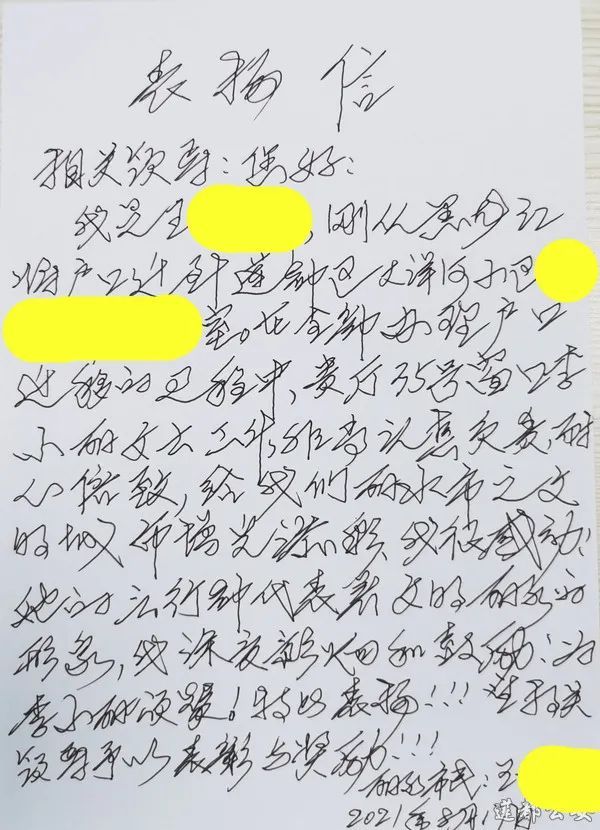 表扬信
相关领导:您好:
我是王 ,刚从黑龙江
将户口迁到莲都区大洋河小区
室。在全部办理户口
迁移的过程中,贵厅35号窗口李
小丽女士工作非常认真负责,耐
心倍致,给我们丽水市之文
明城市增光添彩,我很感动!
她的言行都代表着文明丽水的
形象,我深 和鼓励!为
李小丽颂 !特此表扬!!!望相关
领导予以表彰与奖励!!!
丽水市民:王
2021年8月1
莲都公安